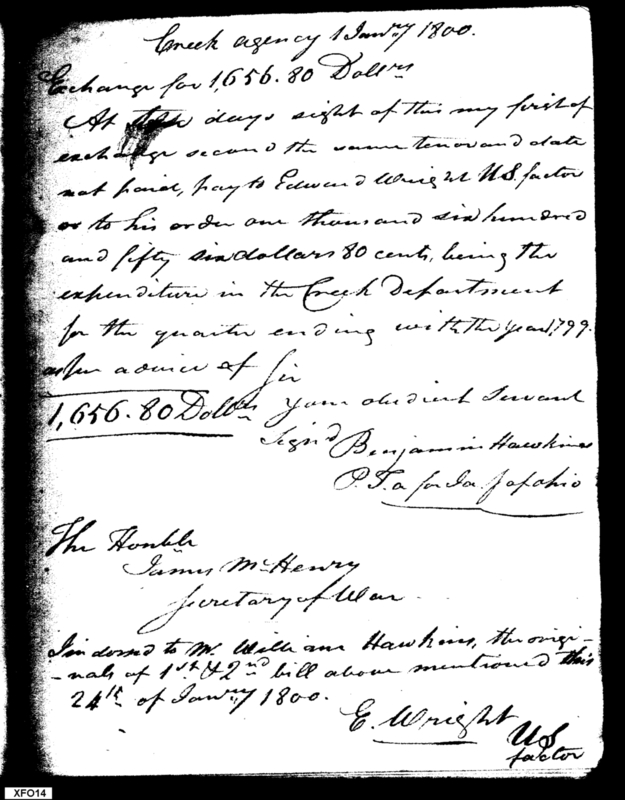 Creek agency 1 Janry 1800.
Exchange for 1,656.80 Dollrs
At ten days sight of this my first of
exchange second the same tenor and date
not paid, pay to Edward Wright U.S. factor
or to his order one thousand six hundred
and fifty six dollars 80 cents, being the
expenditure in the Creek Department
for the quarter ending with the year 1799.
as per advice of Sir
1,656.80 Dollrs your obedient Servant
Signd Benjamin Hawkins
P. T. a for I a S of Ohio
The Honble
James McHenry
Secretary of War
I indorsed to Mr. William Hawkins, the origi-
-nals of 1st & 2nd bill above mentioned this
24th of Janry 1800.
E. Wright
US
factor
XFO14